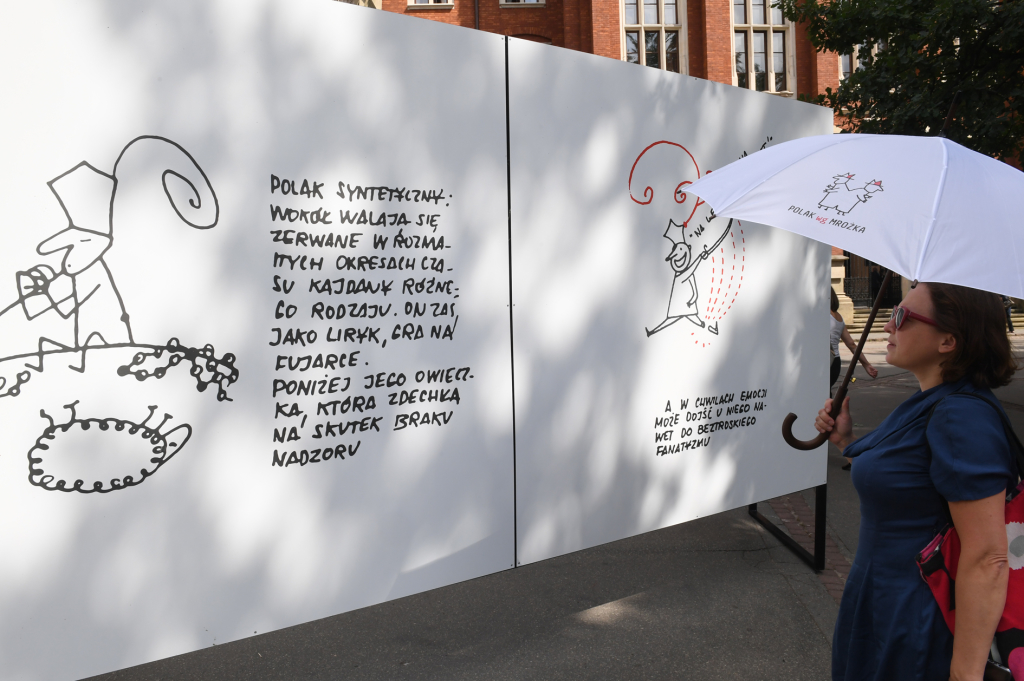 POLAK SYNTETYCZNY:
WOKÓŁ WALAJĄ SIĘ
ZERWANE W ROZMA-
ITYCH OKRESACH CZA-
SU KAJDANY RÓŻNE-
GO RODZAJU. ON ZAŚ,
JAKO LIRYK, GRA NA
FUJARCE.
PONIŻEJ JEGO OWIECZ-
KA, KTÓRA ZDECHŁA
NA SKUTEK BRAKU
NADZORU
"NA
A W CHWILACH EMOCJI
MOŻE DOJŚĆ U NIEGO NA-
WET DO BEZTROSKIEGO
FANATYZMU
POLAK wg MROŻKA